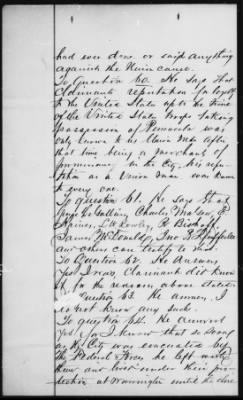 had ever done or said anything
against the Union cause.
To Question 60. He says that
Claimants reputation for loyalty
to the United States up to the time
of the United States troops taking
possession of Pensacola was
only known to his Union men after
that time being a merchant of
prominence in the City, his repu-
tation as a Union man was known
to every one.
To question 61. He says that
Charles
and others can testify to that
To Question 62. He Answers,
Yes I was, Claimant did know
it for the reasons above stated.
Question 63. He answers, I
do not know any such.
To question 64. He answered
Yes for I know that so soon
as the City was evacuated by
the Federal Forces he left with
them and lived under their pro-
tection at Warrington until the close